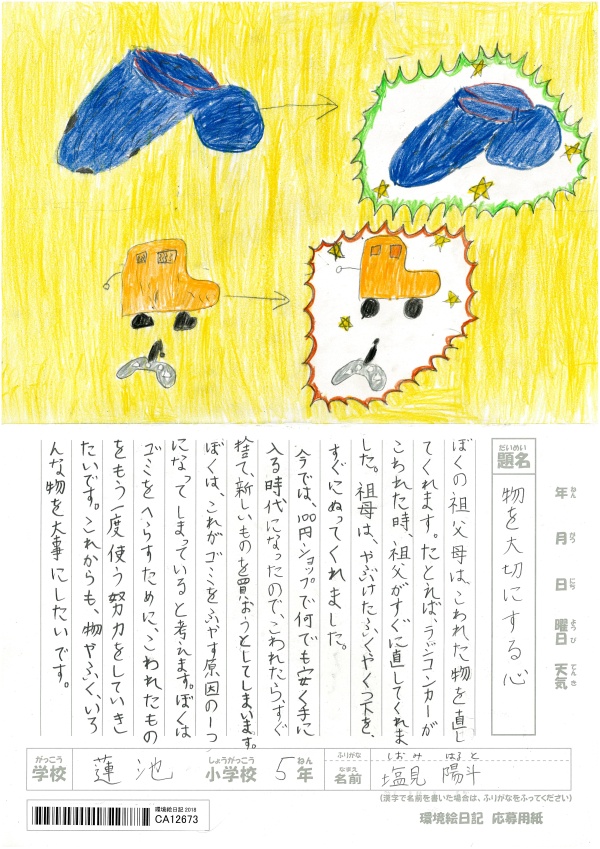 年 ねん
月 がつ
日 にち
曜日 ようび
天気 てんき
だいめい
題名
物を大切にする心
ぼくの祖父母は、こわれた物を直し
てくれます。たとえば、ラジコンカーが
こわれた時、祖父がすぐに直してくれま
した。祖母は、やぶけたふくやくつ下を、
すぐにぬってくれました。
今では、100円ショップで何でも安く手に
入る時代になったので、こわれたらすぐ
捨て、新しいものを買おうとしてしまいます。
ぼくは、これがゴミをふやす原因の一つ
になってしまっていると考えます。ぼくは
ゴミをへらすために、こわれたもの
をもう一度使う努力をしていきし
たいです。これからも、物やふく、いろ
んな物を大事にしたいです。
がっこう
学校
蓮池
しょうがっこう
小学校
5
ねん
年
ふりがな
しおみ はると
なまえ
名前
塩見 陽斗
(漢字で名前を書いた場合は、ふりがなをふってください)
環境絵日記 2018
CA12673
環境絵日記 応募用紙